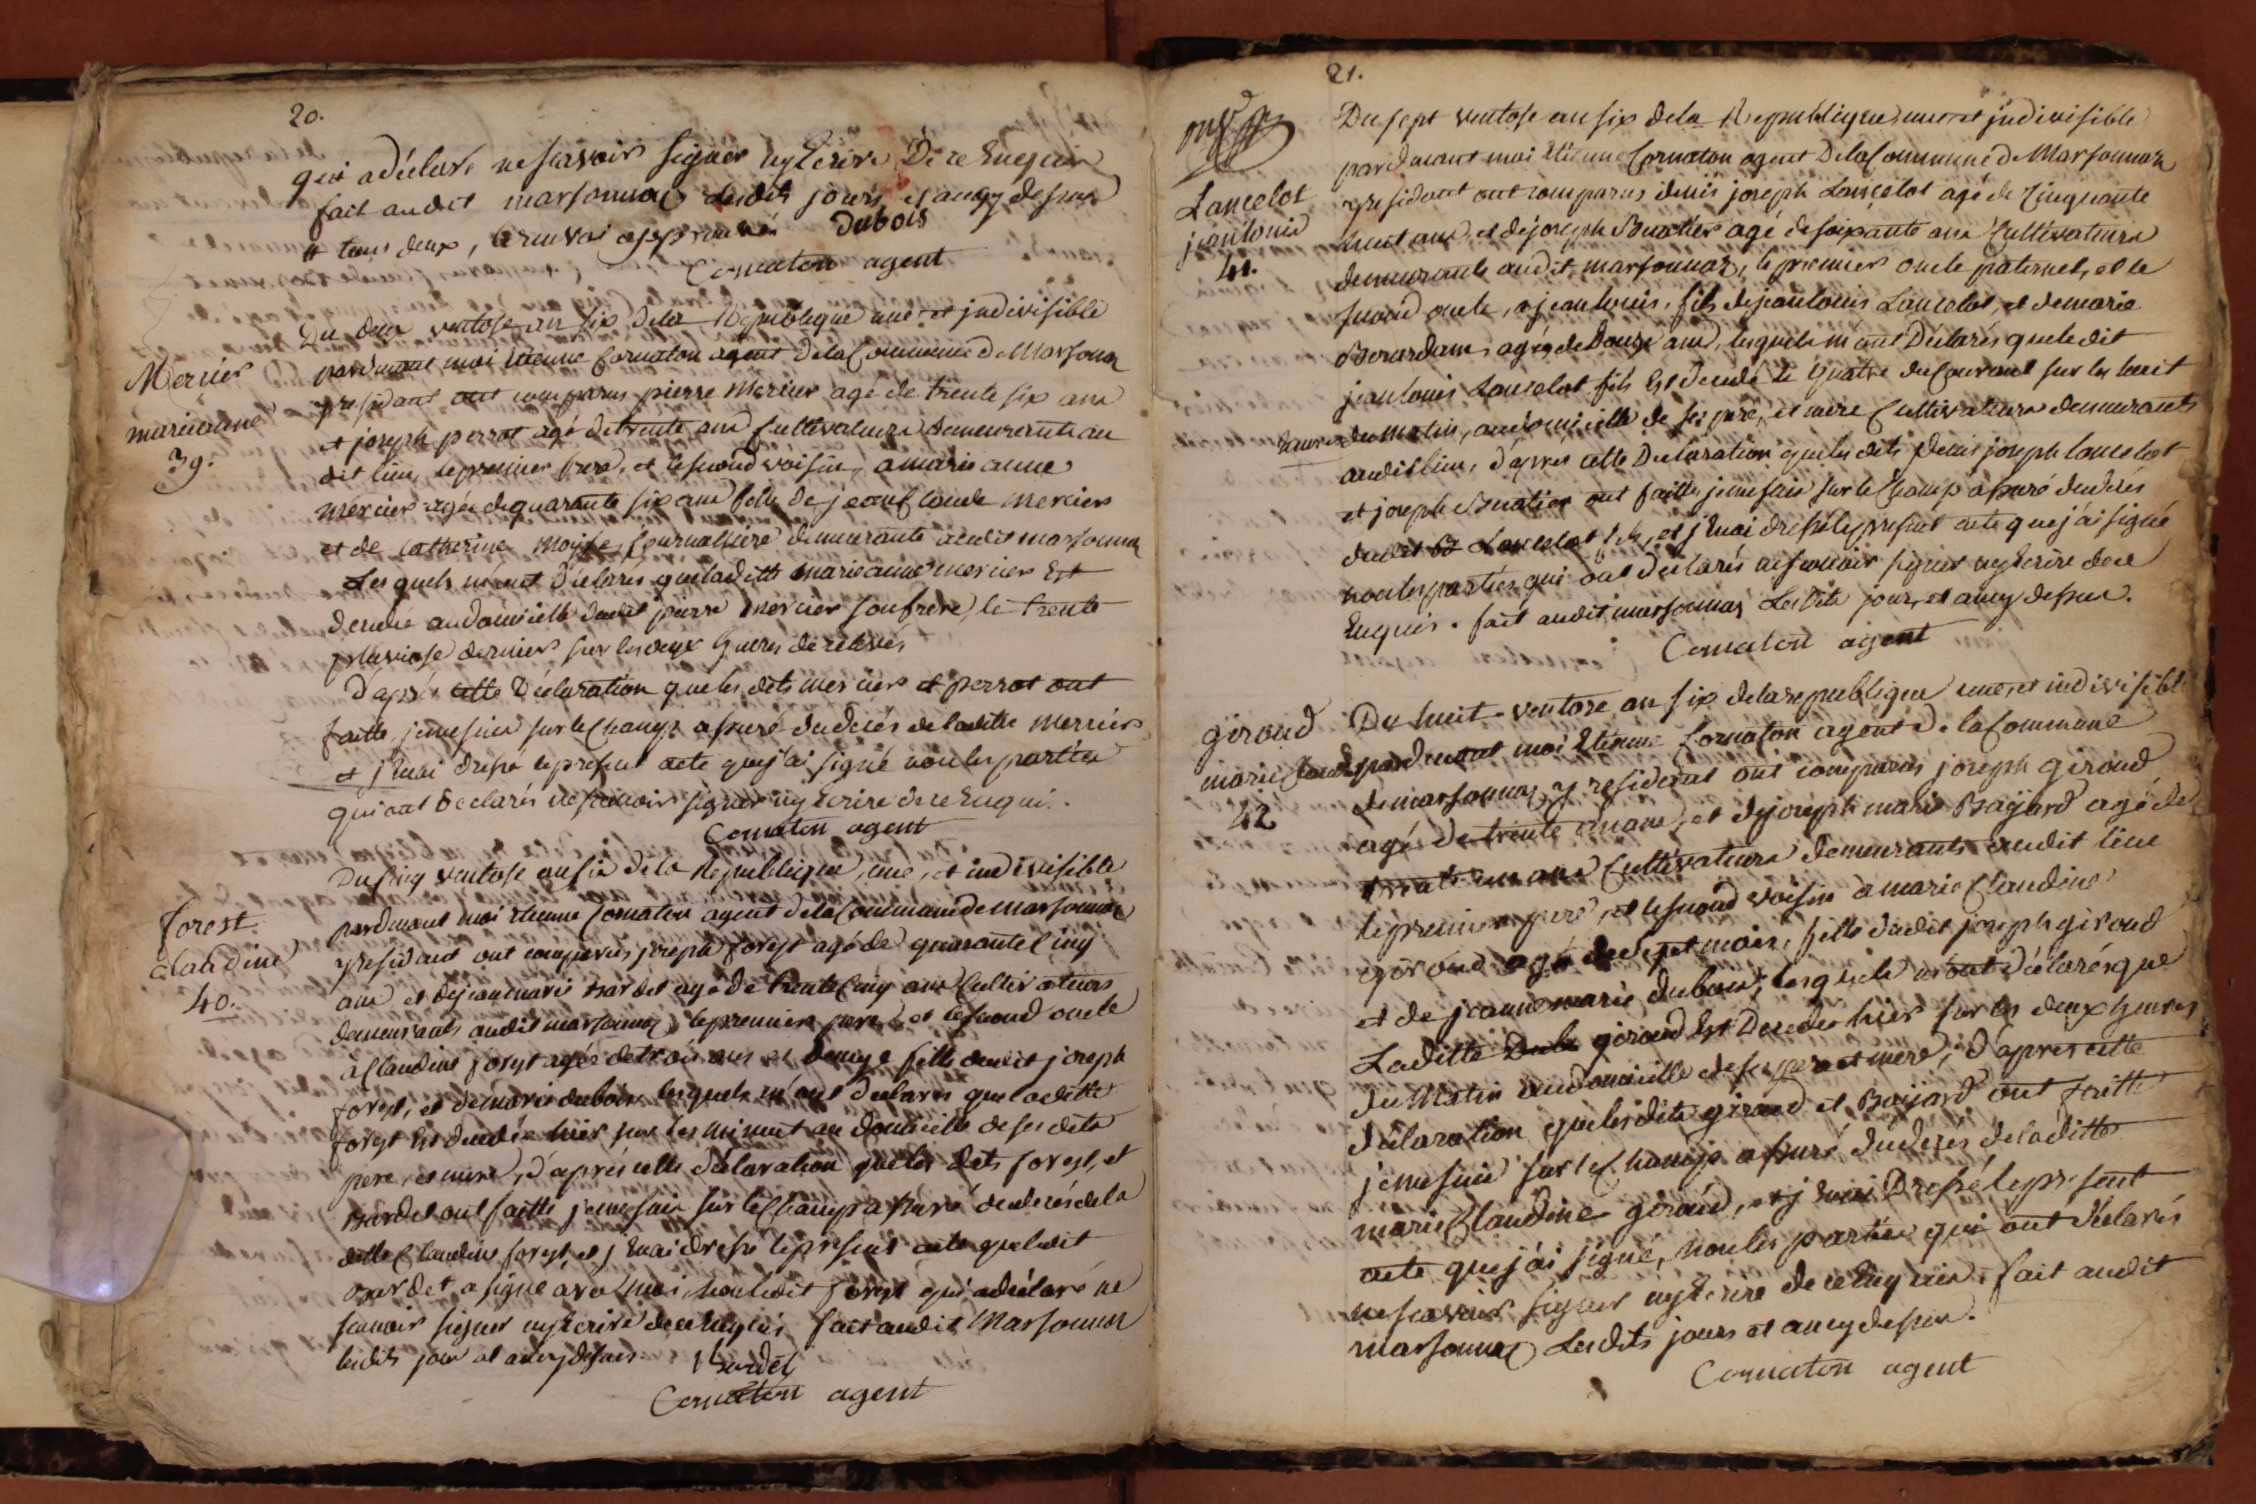 20.
qui a déclaré ne scavoir signer ny Ecrire De ce Enquis
fait audit marsonnaz lesdits jours et an cy dessus
# tous deux, le renvoi approuvé Dubois
Cornaton agent
Du deux ventose an six De la République une et indivisible
Mercier
marieanne
39.
pardevant moi Etienne Cornaton agent De la Commune De Marsonnaz
y residant ont comparus pierre Mercier agé de trente six ans
et joseph perrot agé de trente ans Cultivateurs demeurants au
dit lieu, le premier frere, et le second voisin, a marie anne
mercier agée de quarante six ans fille De jean Claude Mercier
et de Catherine Moysse journalliere demeurante audit marsonnaz
Les quels m'ont Déclarés que laditte marieanne mercier Est
decedée au Domicille dudit pierre mercier son frere, le trente
pluviose dernier sur les deux heures de relevés
D'après cette Déclaration que les dits mercier et perrot ont
faitte je me suis sur le Champ assuré du decés de laditte Mercier
et j'Enai dressé le present acte que j'ai signé non les parties
qui ont Declarés ne scavoir signer ny Ecrire de ce Enquis.
Cornaton agent
Du cinq ventose an six de la Republique, une, et indivisible
forest
Claudine
40.
pardevant moi Etienne Cornaton agent de la Commune de Marsonnaz
y residant ont comparus joseph forest agé de quarante Cinq
ans et de jeanmarie Bardet agé de trente Cinq ans Cultivateurs
demeurants audit marsonnaz, le premier pere, et le second oncle
à Claudine forest agée de trois ans et demye fille dudit joseph
forest, et de marie dubois lesquels m'ont déclarés que laditte
forest Est decedée hier sur les minuit au domicille de ses dits
pere, et mere, d'après cette déclaration que les dits forest, et
Bardet ont faitte je me suis sur le Champ assuré du decés de la
ditte Claudine forest et j'Enai dressé le present acte que ledit
Bardet a signé avec moi, non ledit forest qui a déclaré ne
scavoir signer ny Ecrire de ce Enquis, fait audit Marsonnaz
lesdits jour et an cy dessus. Bardet
Cornaton agent
21.
Lancelot
jeanlouis
41.
Du sept ventose an six de la Republique une et indivisible
pardevant moi Etienne Cornaton agent De la Commune De Marsonnaz
y residant ont comparus denis joseph Lancelot agé de Cinquante
huit ans, et de joseph Buatier agé de soixante ans Cultivateurs
demeurants audit marsonnaz, le premier oncle paternel, et le
second oncle, a jeanlouis, fils de jeanlouis Lancelot, et de marie
agé de Douze ans, lesquels m'ont Déclarés que ledit
jeanlouis Lancelot fils Est decedé le quatre du Courant sur les huit
heures du Matin, au domicille de ses pere, et mere Cultivateurs demeurants
audit lieu, d'après cette Declaration que les dits denis joseph lancelot
et joseph Buatier ont faitte, je me suis sur le Champ assuré du decés
dudit Lancelot fils, et j'Enai dressé le present acte que j'ai signé
non les parties qui ont déclarés ne scavoir signer ny Ecrire de ce
Enquis. fait audit marsonnaz Lesdits jour, et an cy dessus.
Cornaton agent
giroud
marie Claudine
42
Du huit ventose an six de la republique une, et indivisible
pardevant moi Etienne Cornaton agent de la Commune
de marsonnaz y residant ont comparus joseph giroud
agé de trente ans, et de joseph marie Bayard agé de
trente ans Cultivateurs demeurants audit lieu
le premier pere, et le second voisin a marie Claudine
giroud agé de sept mois, fille dudit joseph giroud
et de jeanne marie dubois, lesquels m'ont déclarés que
Laditte giroud Est Decedée hier sur les deux heures
du Matin au domicille de ses pere et mere, D'après cette
déclaration que lesdits giroud et Bayard ont faitte
je me suis sur le Champ assuré du decés de laditte
marie Claudine giroud, et j'Enai Dressé le present
acte que j'ai signé, non les parties qui ont déclarés
ne scavoir signer ny Ecrire de ce Enquis. fait audit
marsonnaz Lesdits jours et an cy dessus.
Cornaton agent